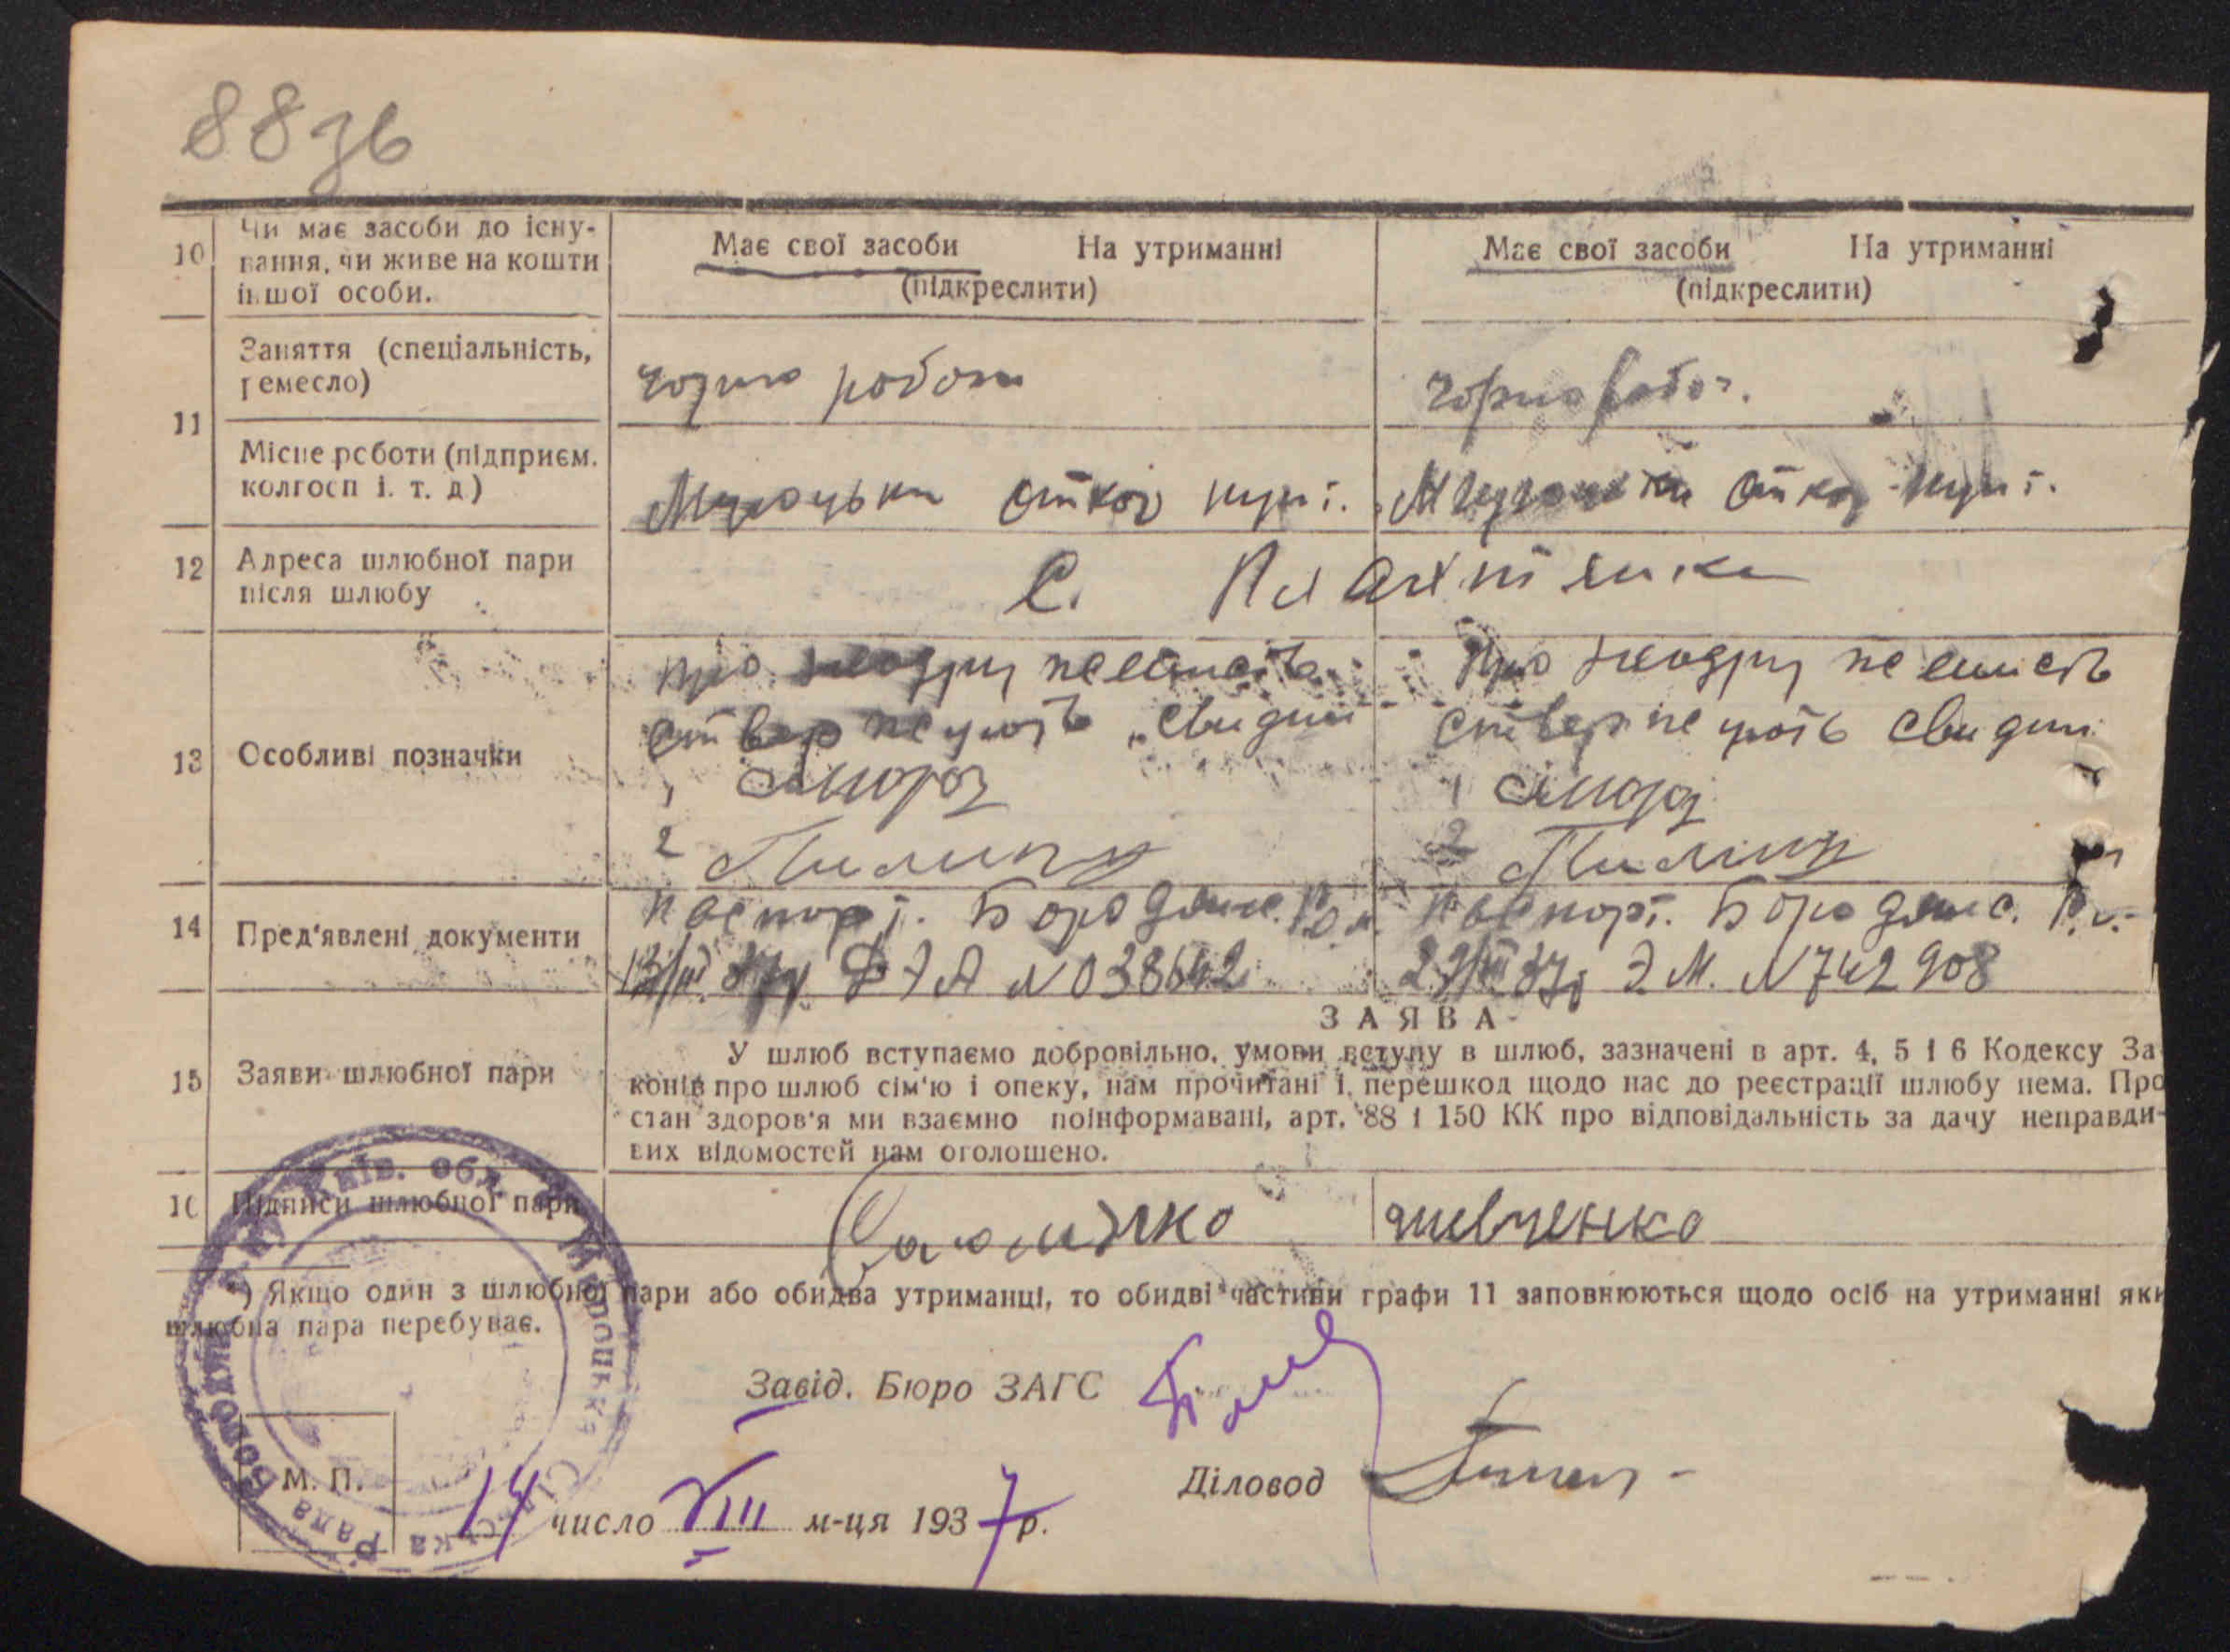 88зв
10 Чи має засоби до існу-
вання, чи живе на кошти
іншої особи.
Має свої засоби На утриманні
(підкреслити)
Має свої засоби На утриманні
(підкреслити)
11
Заняття (спеціальність,
ремесло)
чорно робоч
чорнорабоч.
Місце роботи (підприєм.
колгосп і. т. д)
Мироцьки откор пункт.
Мироцьки откор пункт.
12 Адреса шлюбної пари
після шлюбу
С.
13 Особливі позначки
про
стверджують свидки
1 Мороз
2 Пилипч
Про
стверджують свидки
1 Мороз
2 Пилипч
14 Пред'явлені документи
паспорт. Бородянс. Р.в.
13/ІІІ 37р ДЭА N 038642
паспорт. Бородянс. Р.в.
29/ІІІ 37р Э.М. N 742908
ЗАЯВА
15 Заяви шлюбної пари
У шлюб вступаємо добровільно, умови вступу в шлюб, зазначені в арт. 4, 5 і 6 Кодексу За
конів про шлюб сім'ю і опеку, нам прочитані і перешкод щодо нас до реєстрації шлюбу нема. Про
стан здоров'я ми взаємно поінформавані, арт. 88 і 150 КК про відповідальність за дачу неправди-
вих відомостей нам оголошено.
16 Підписи шлюбної пари
шевченко
*) Якщо один з шлюбної пари або обидва утриманці, то обидві частини графи 11 заповнюються щодо осіб на утриманні яки
шлюбна пара перебуває.
Завід. Бюро ЗАГС
Діловод
М. П.
14 число VIII м-ця 1937 р.
Київ. обл. Мироцька Сільська Рада Бородян. р-ну